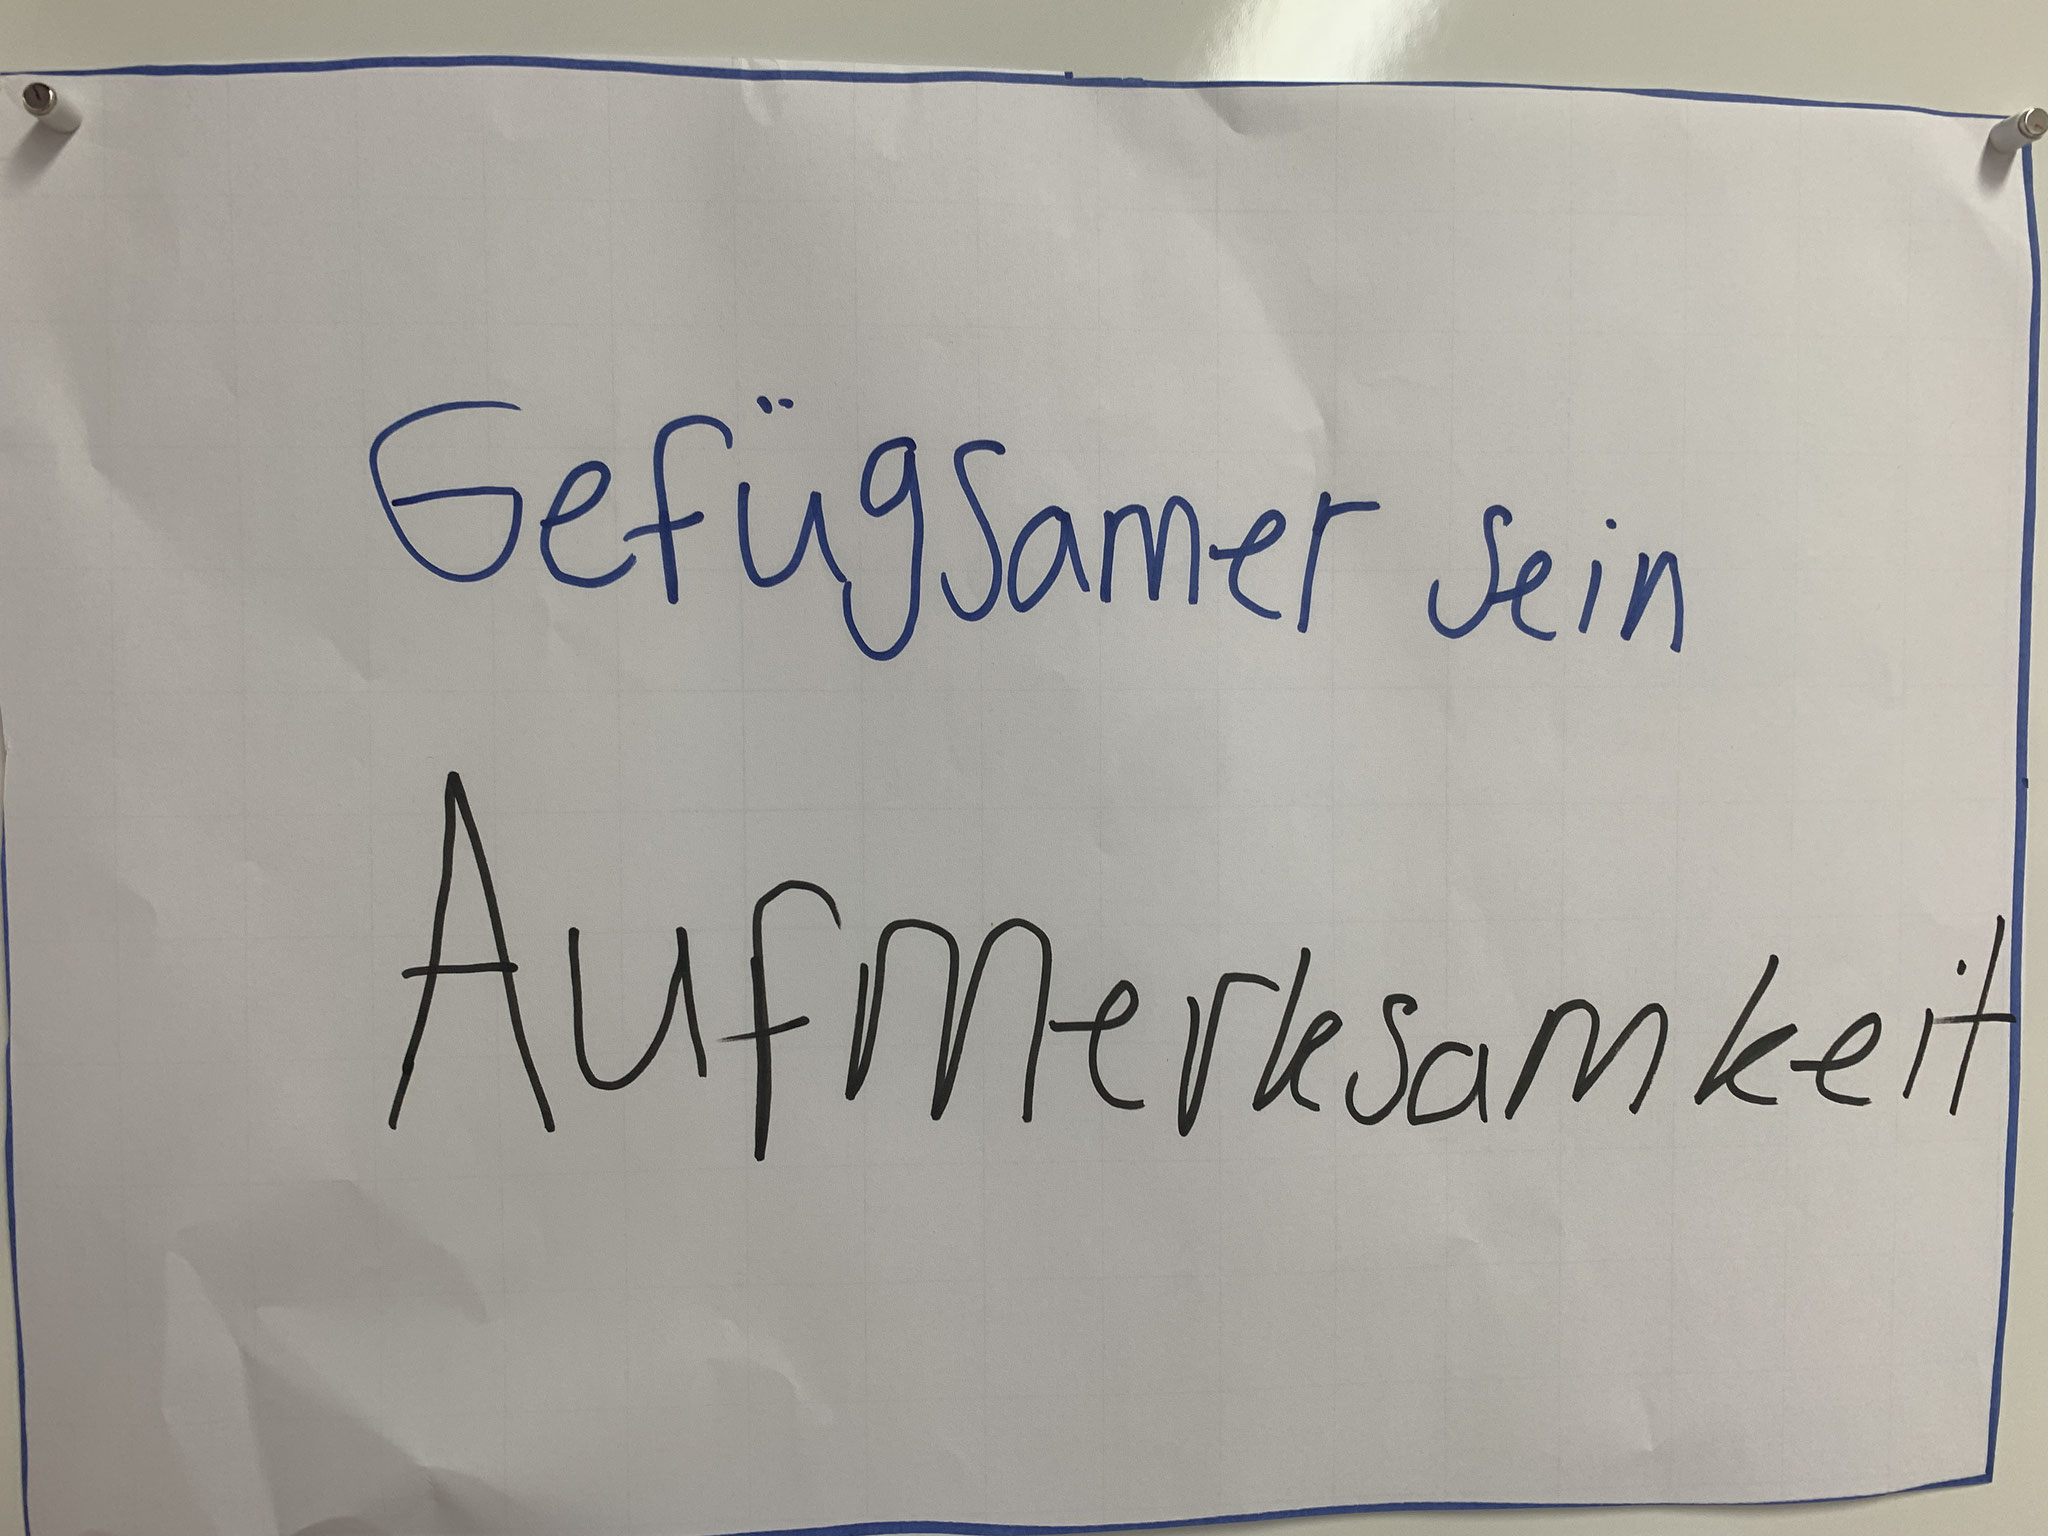 Gefügsamer sein
Aufmerksamkeit